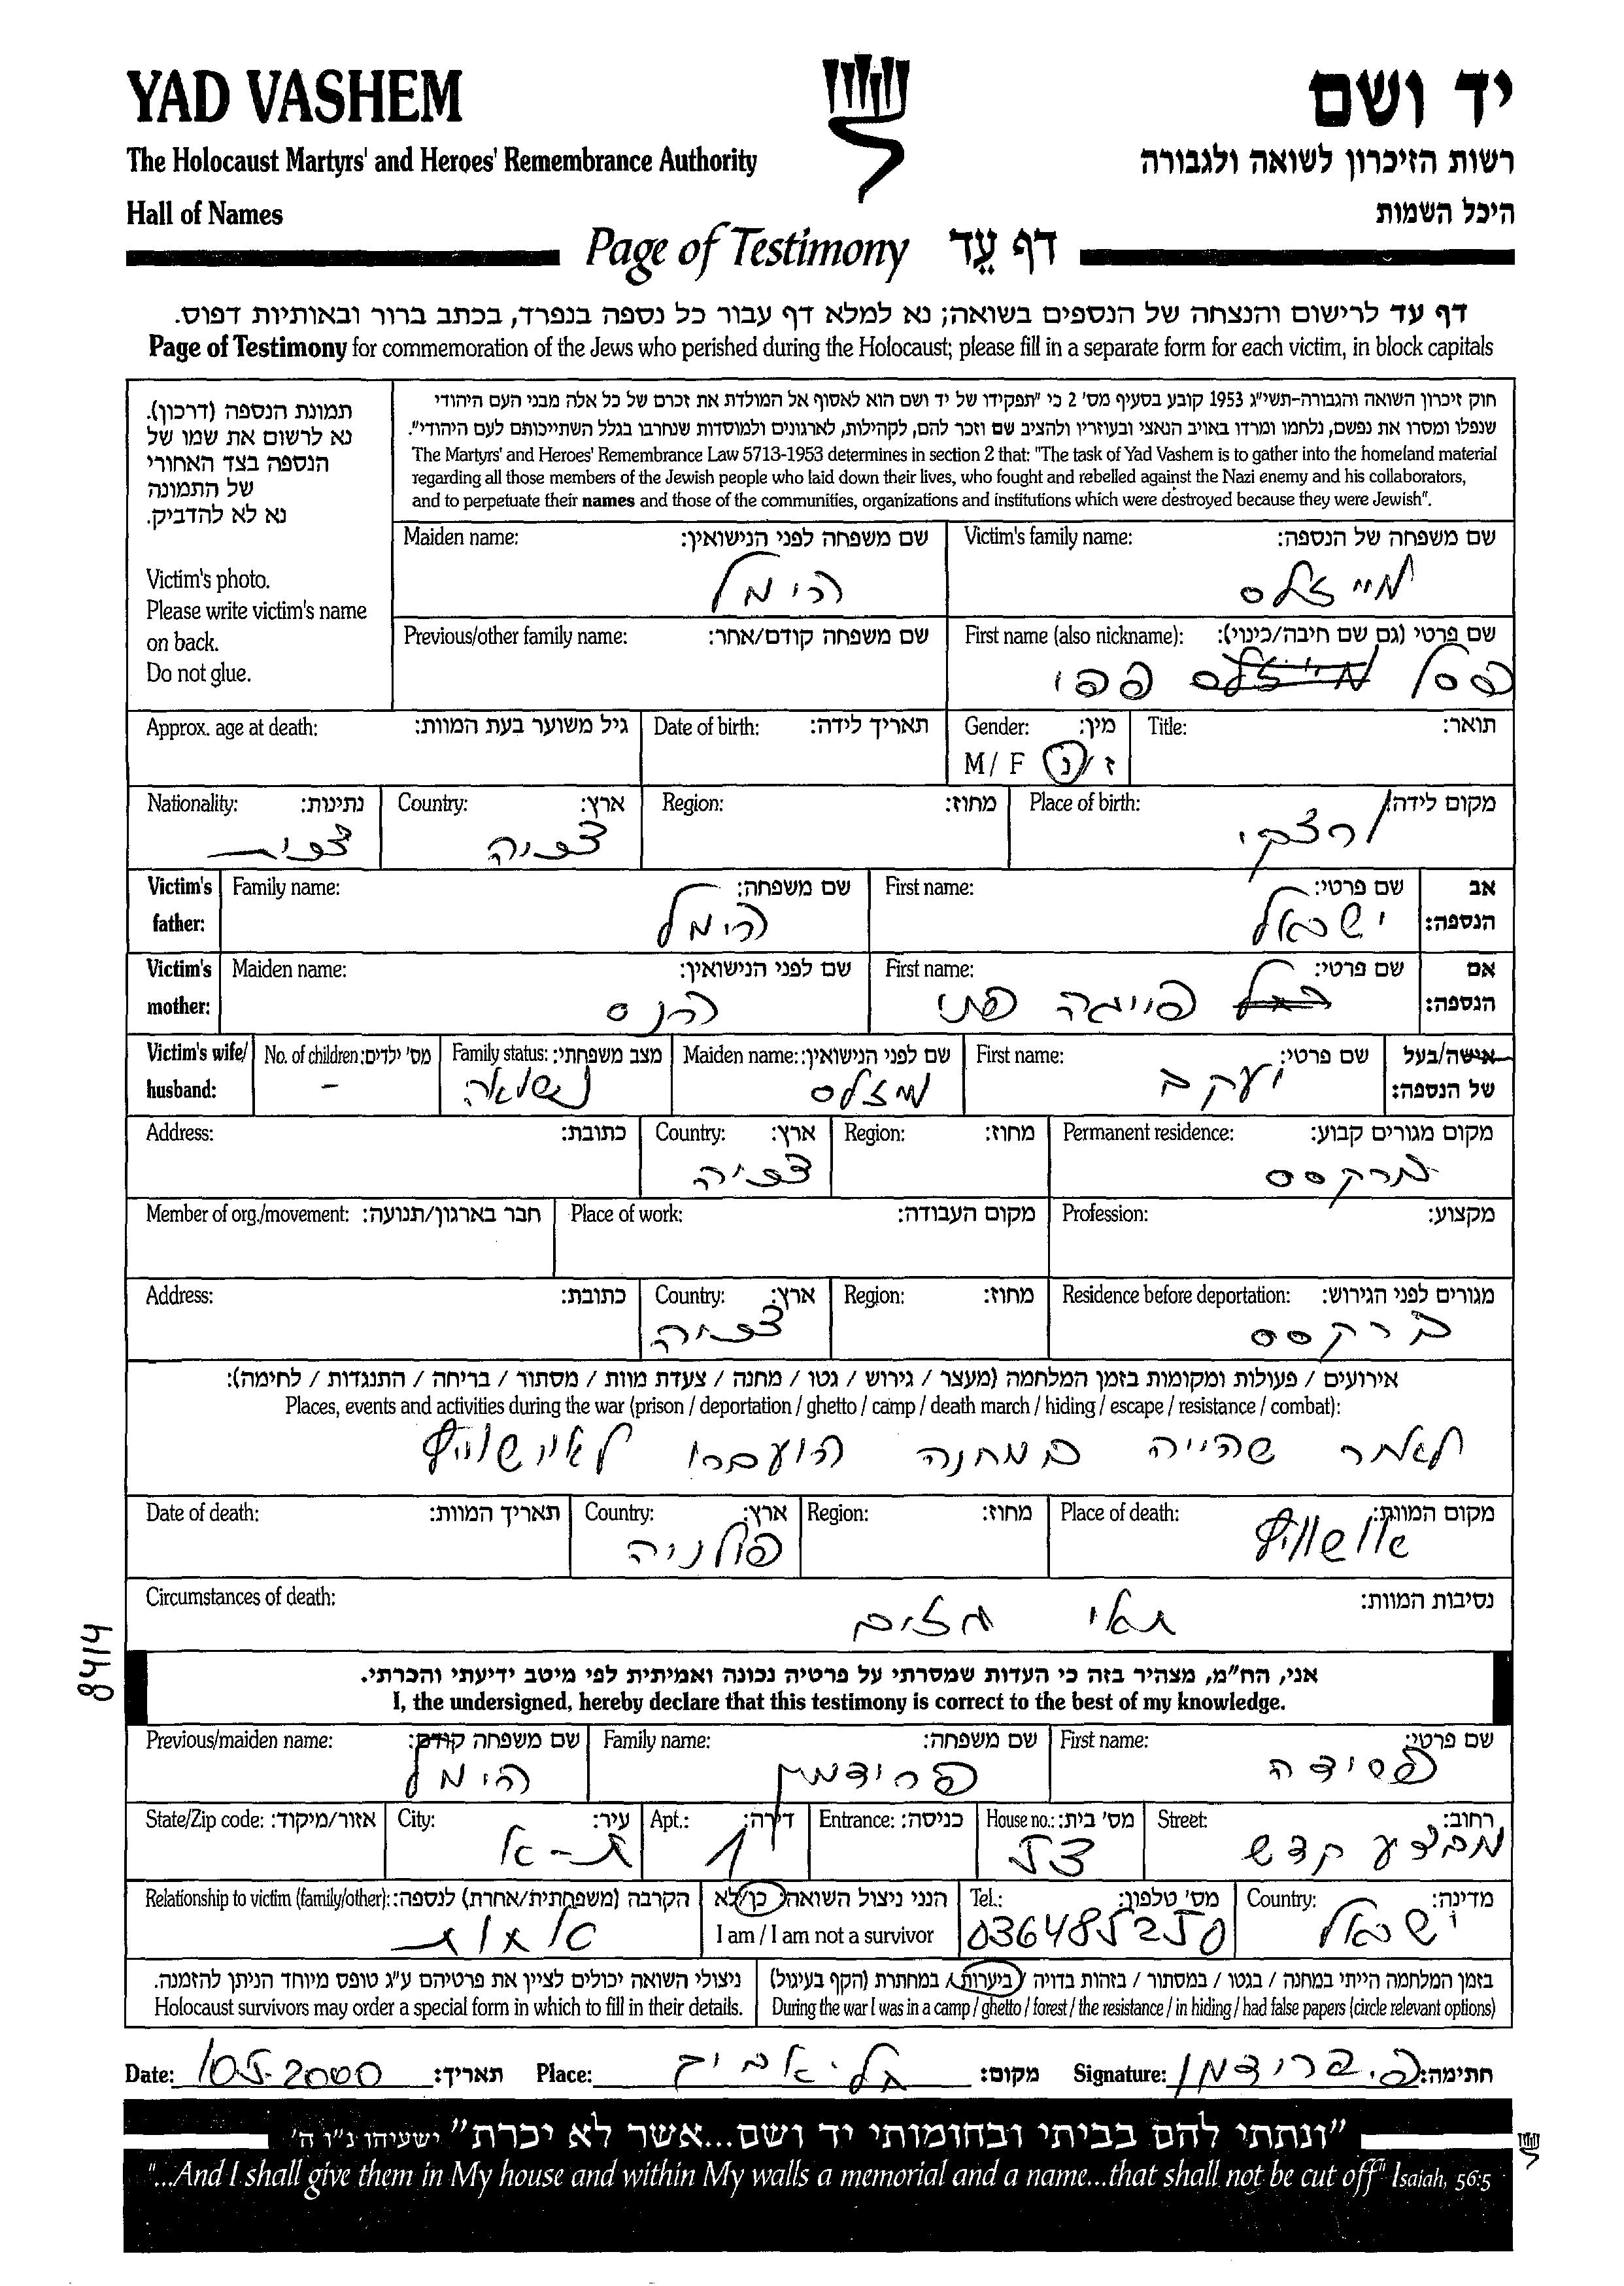 YAD VASHEM
יד ושם
The Holocaust Martyrs' and Heroes' Remembrance Authority
רשות הזיכרון לשואה ולגבורה
Hall of Names
היכל השמות
Page of Testimony דף עֵד
דף עד לרישום והנצחה של הנספים בשואה; נא למלא דף עבור כל נספה בנפרד, בכתב ברור ובאותיות דפוס.
Page of Testimony for commemoration of the Jews who perished during the Holocaust; please fill in a separate form for each victim, in block capitals
תמונת הנספה (דרכון).
נא לרשום את שמו של
הנספה בצד האחורי
של התמונה
נא לא להדביק.
Victim's photo.
Please write victim's name
on back.
Do not glue.
חוק זיכרון השואה והגבורה-תשי"ג 1953 קובע בסעיף מס' 2 כי "תפקידו של יד ושם הוא לאסוף אל המולדת את זכרם של כל אלה מבני העם היהודי
שנפלו ומסרו את נפשם, נלחמו ומרדו באויב הנאצי ובעוזריו ולהציב שם וזכר להם, לקהילות, לארגונים ולמוסדות שנחרבו בגלל השתייכותם לעם היהודי".
The Martyrs' and Heroes' Remembrance Law 5713-1953 determines in section 2 that: "The task of Yad Vashem is to gather into the homeland material
regarding all those members of the Jewish people who laid down their lives, who fought and rebelled against the Nazi enemy and his collaborators,
and to perpetuate their names and those of the communities, organizations and institutions which were destroyed because they were Jewish".
Victim's family name: שם משפחה של הנספה:
מייזלס
Maiden name: שם משפחה לפני הנישואין:
הימל
First name (also nickname): שם פרטי (גם שם חיבה/כינוי):
פסל מייזלס פפי
Previous/other family name: שם משפחה קודם/אחר:
Title: תואר:
Gender: מין:
M / F ז / נ
Date of birth: תאריך לידה:
Approx. age at death: גיל משוער בעת המוות:
Place of birth: מקום לידה:
Region: מחוז:
Country: ארץ:
צכיה
Nationality: נתינות:
צכית
Victim's father: אב הנספה:
First name: שם פרטי:
ישראל
Family name: שם משפחה:
הימל
Victim's mother: אם הנספה:
First name: שם פרטי:
פייגה פני
Maiden name: שם לפני הנישואין:
הנס
Victim's wife/ husband: אישה/בעל של הנספה:
First name: שם פרטי:
יעקב
Maiden name: שם לפני הנישואין:
מזלס
Family status: מצב משפחתי:
נשואה
No. of children: מס' ילדים:
-
Permanent residence: מקום מגורים קבוע:
ברקסס
Region: מחוז:
Country: ארץ:
צכיה
Address: כתובת:
Profession: מקצוע:
Place of work: מקום העבודה:
Member of org./movement: חבר בארגון/תנועה:
Residence before deportation: מגורים לפני הגירוש:
ברקסס
Region: מחוז:
Country: ארץ:
צכיה
Address: כתובת:
אירועים / פעולות ומקומות בזמן המלחמה (מעצר / גירוש / גטו / מחנה / צעדת מוות / מסתור / בריחה / התנגדות / לחימה):
Places, events and activities during the war (prison / deportation / ghetto / camp / death march / hiding / escape / resistance / combat):
לאחר שהייה במחנה הועברו לאוישוויץ
Place of death: מקום המוות:
אושוויץ
Region: מחוז:
Country: ארץ:
פולניה
Date of death: תאריך המוות:
Circumstances of death: נסיבות המוות:
תאי גזים
8414
אני, הח"מ, מצהיר בזה כי העדות שמסרתי על פרטיה נכונה ואמיתית לפי מיטב ידיעתי והכרתי.
I, the undersigned, hereby declare that this testimony is correct to the best of my knowledge.
First name: שם פרטי:
פרידה
Family name: שם משפחה:
פרידמן
Previous/maiden name: שם משפחה קודם:
הימל
Street: רחוב:
מבצע קדש
House no.: מס' בית:
52
Entrance: כניסה:
Apt.: דירה:
1
City: עיר:
ת-א
State/Zip code: אזור/מיקוד:
Country: מדינה:
ישראל
Tel.: מס' טלפון:
036485250
הנני ניצול השואה: כן/לא
I am / I am not a survivor
Relationship to victim (family/other): הקרבה (משפחתית/אחרת) לנספה:
אחות
בזמן המלחמה הייתי במחנה / בגטו / במסתור / בזהות בדויה / ביערות / במחתרת (הקף בעיגול)
During the war I was in a camp / ghetto / forest / the resistance / in hiding / had false papers (circle relevant options)
ניצולי השואה יכולים לציין את פרטיהם ע"ג טופס מיוחד הניתן להזמנה.
Holocaust survivors may order a special form in which to fill in their details.
Date: 10.5.2000 תאריך: Place: תל-אביב מקום: Signature: פ. פרידמן חתימה:
"ונתתי להם בביתי ובחומותי יד ושם...אשר לא יכרת" ישעיהו נ"ו ה'
"...And I shall give them in My house and within My walls a memorial and a name...that shall not be cut off" Isaiah, 56:5